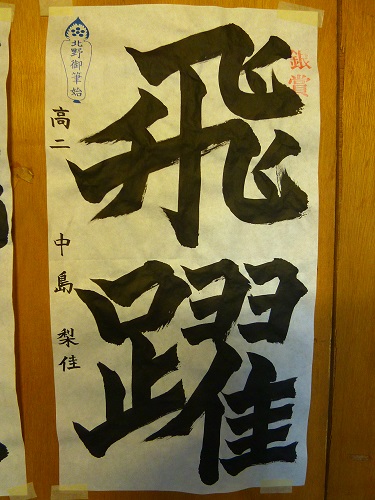 銀賞
飛躍
北野御筆始
高二 中島 梨佳